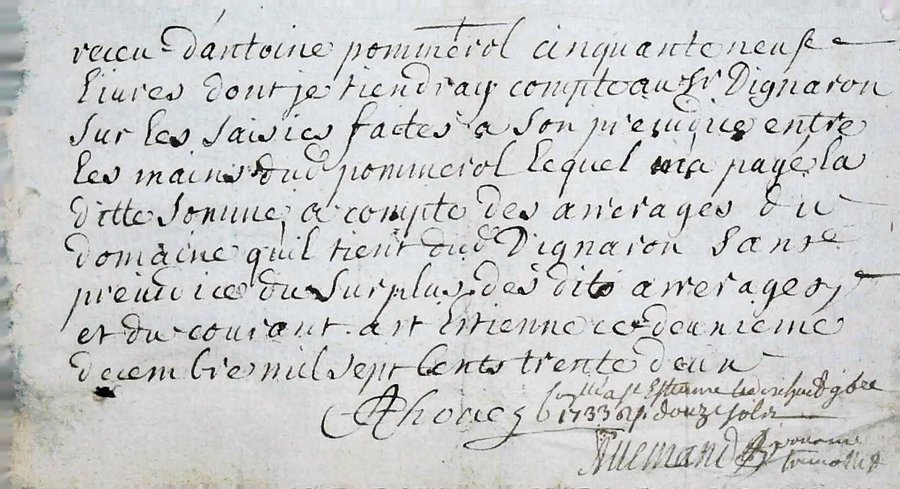 receu dantoine pommerol cinquante neuf
livres dont je tiendray compte au Sr Dignaron
sur les saisies faites a son prejudice entre
les mains dud pommerol lequel ma payé la
ditte somme a compte des arrerages du
domaine quil tient dud Dignaron sans
prejudice du surplus des dits arrerages,
et du courant a st Estienne ce deuxieme
decembre mil sept cents trente deux
a st Estienne 9bre
1733 douze sols
Allemand